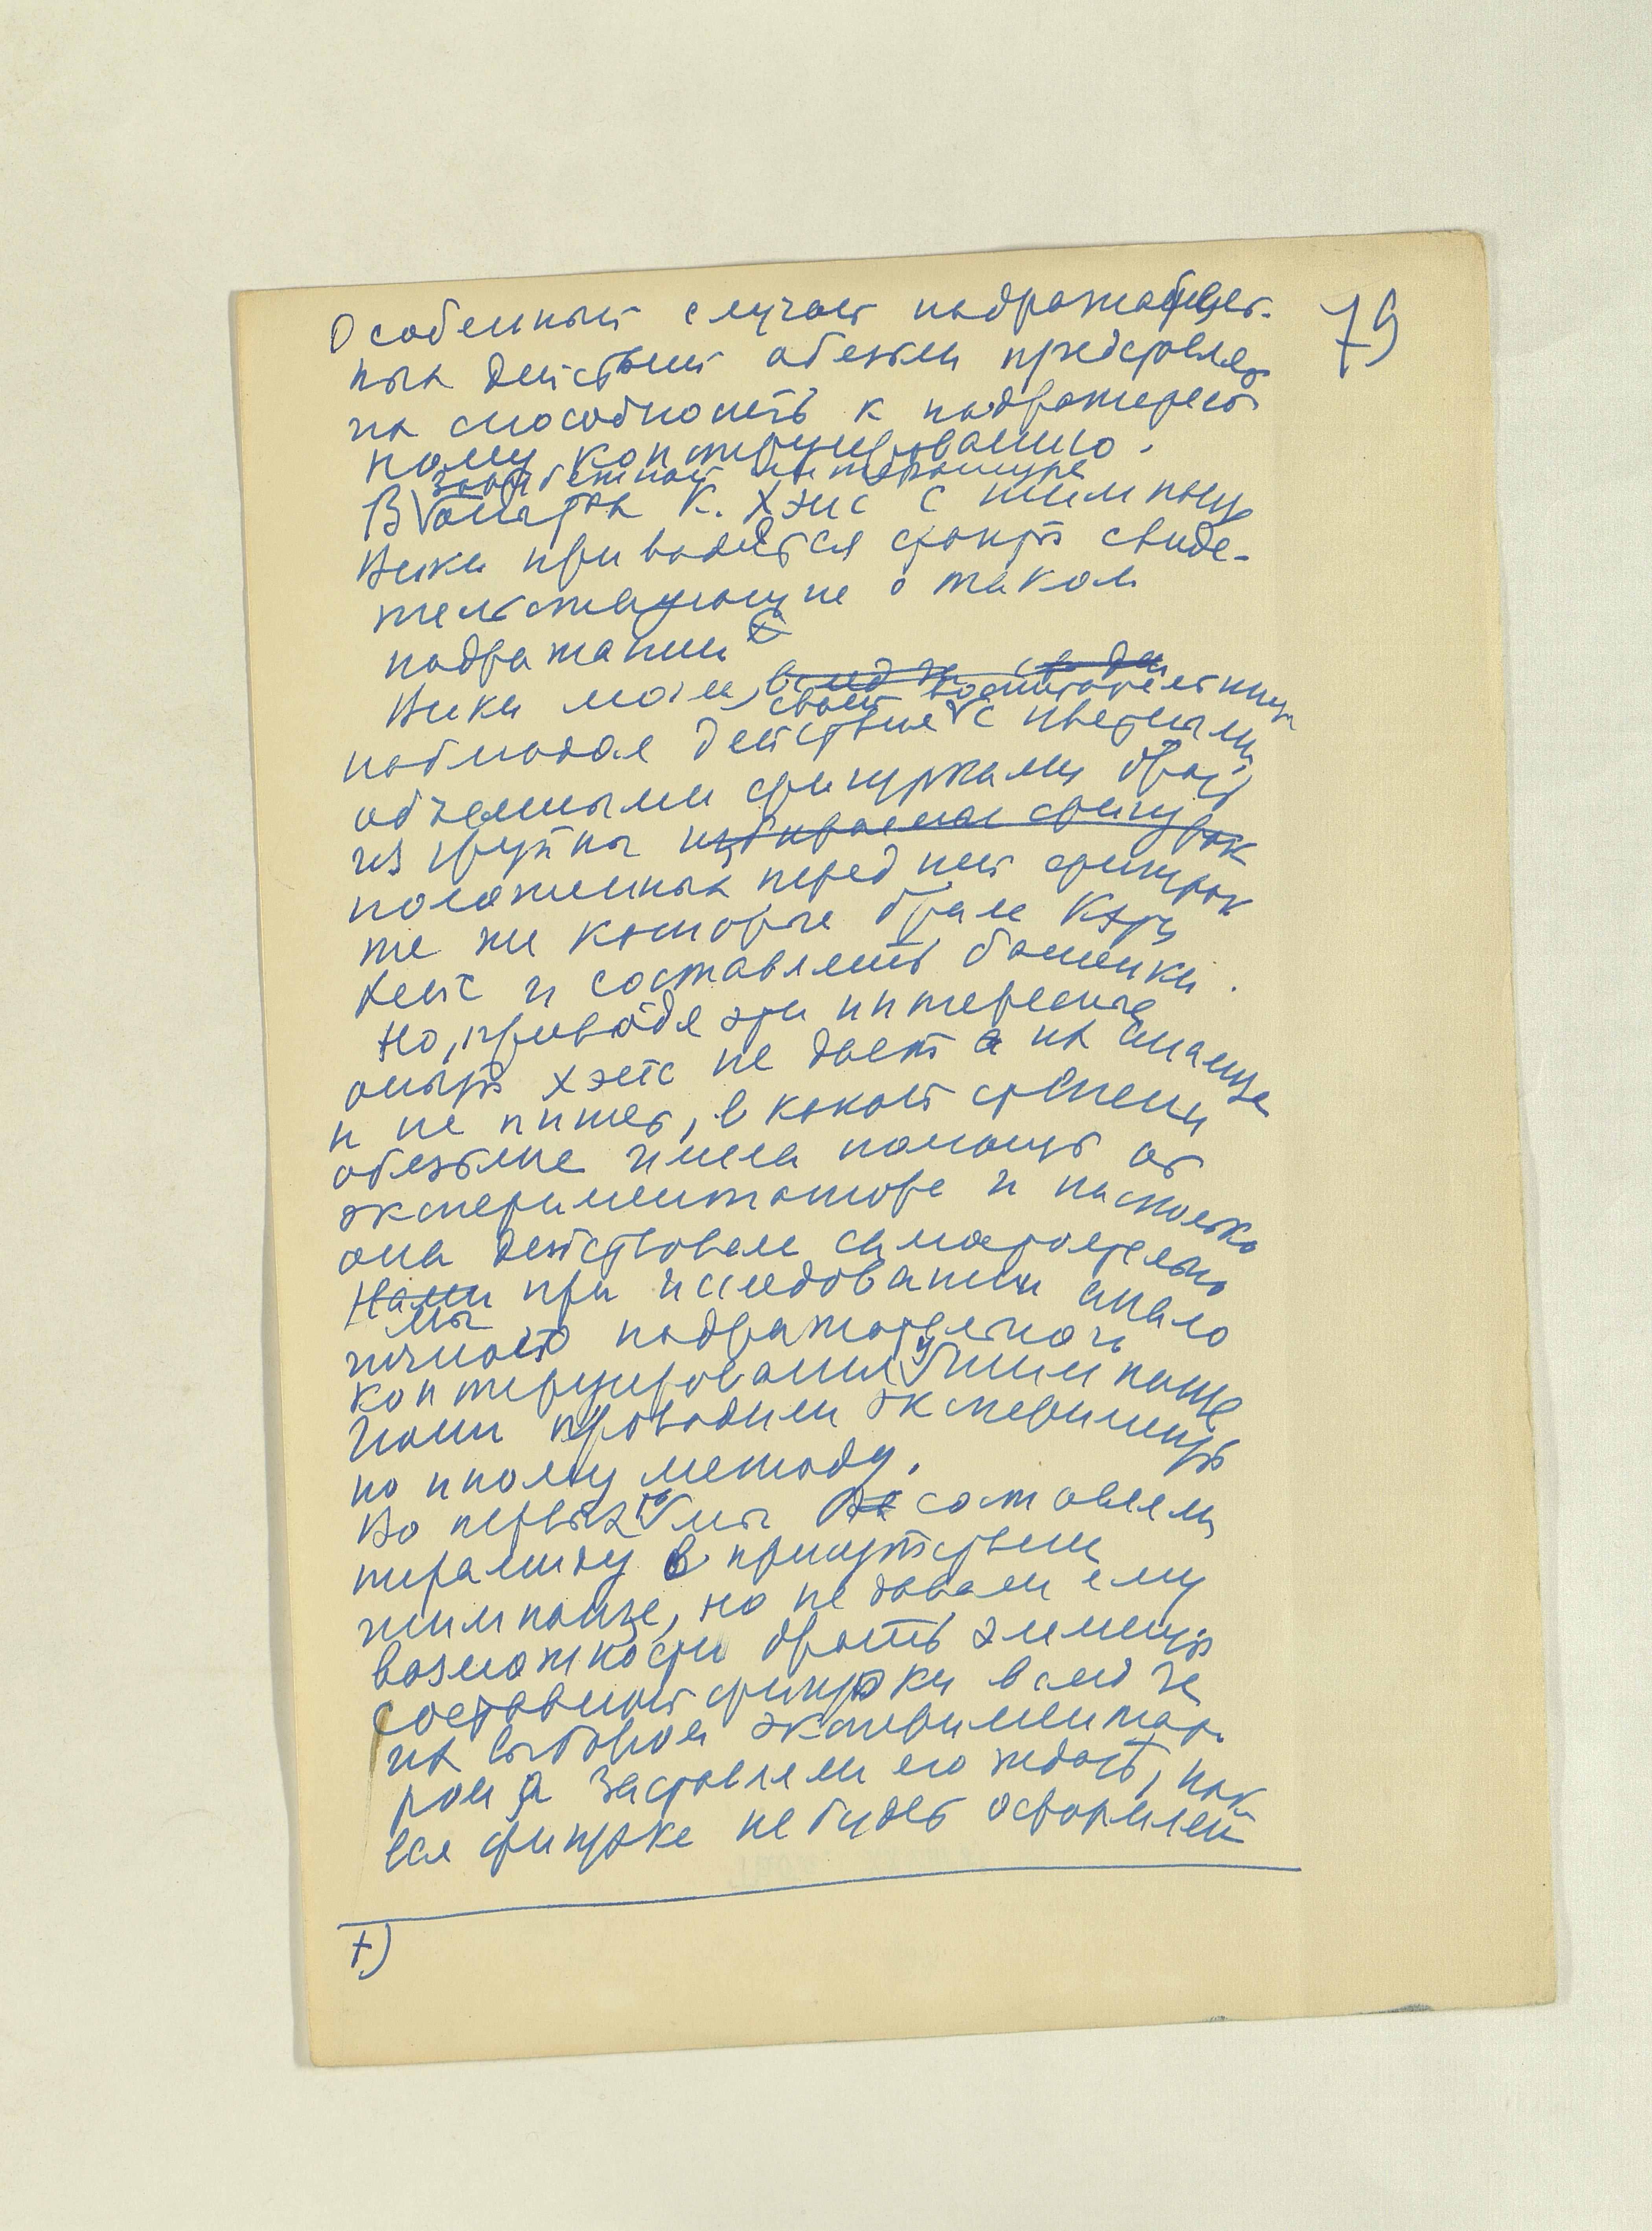 79
Особенный случай подражатель-
ных действий обезьян представляет
их способность к подражатель
ному конструированию.
зарубежной литературе
В опытах К. Хэйс с шимпанзе
Вики приводятся факты свиде-
тельствующие о таком
подражании x)
Вики могла, вслед за
своей воспитательницы
наблюдая действие с цветными
объемными фигурками брать
из группы избираемых фигурок
положенных перед ней фигурок
те же которые брала Кэти
Хейс и составлять башенки.
Но, приводя эти интересные
опыты Хэйс не дает их анализа
и не пишет, в какой степени
обезьяна имела помощь от
экспериментатора и насколько
она действовала самостоятельно
Нами при исследовании анало
мы
гичного подражательного
конструирования у шимпанзе
нами проводили эксперименты
по иному методу.
Во первых мы составляли
пирамиду в присутствии
шимпанзе, но не давали ему
возможности брать элементы
составной фигурки вслед за
их выбором экспериментато-
ром а заставляли его ждать, пок
вся фигурка не будет оформлен
x)